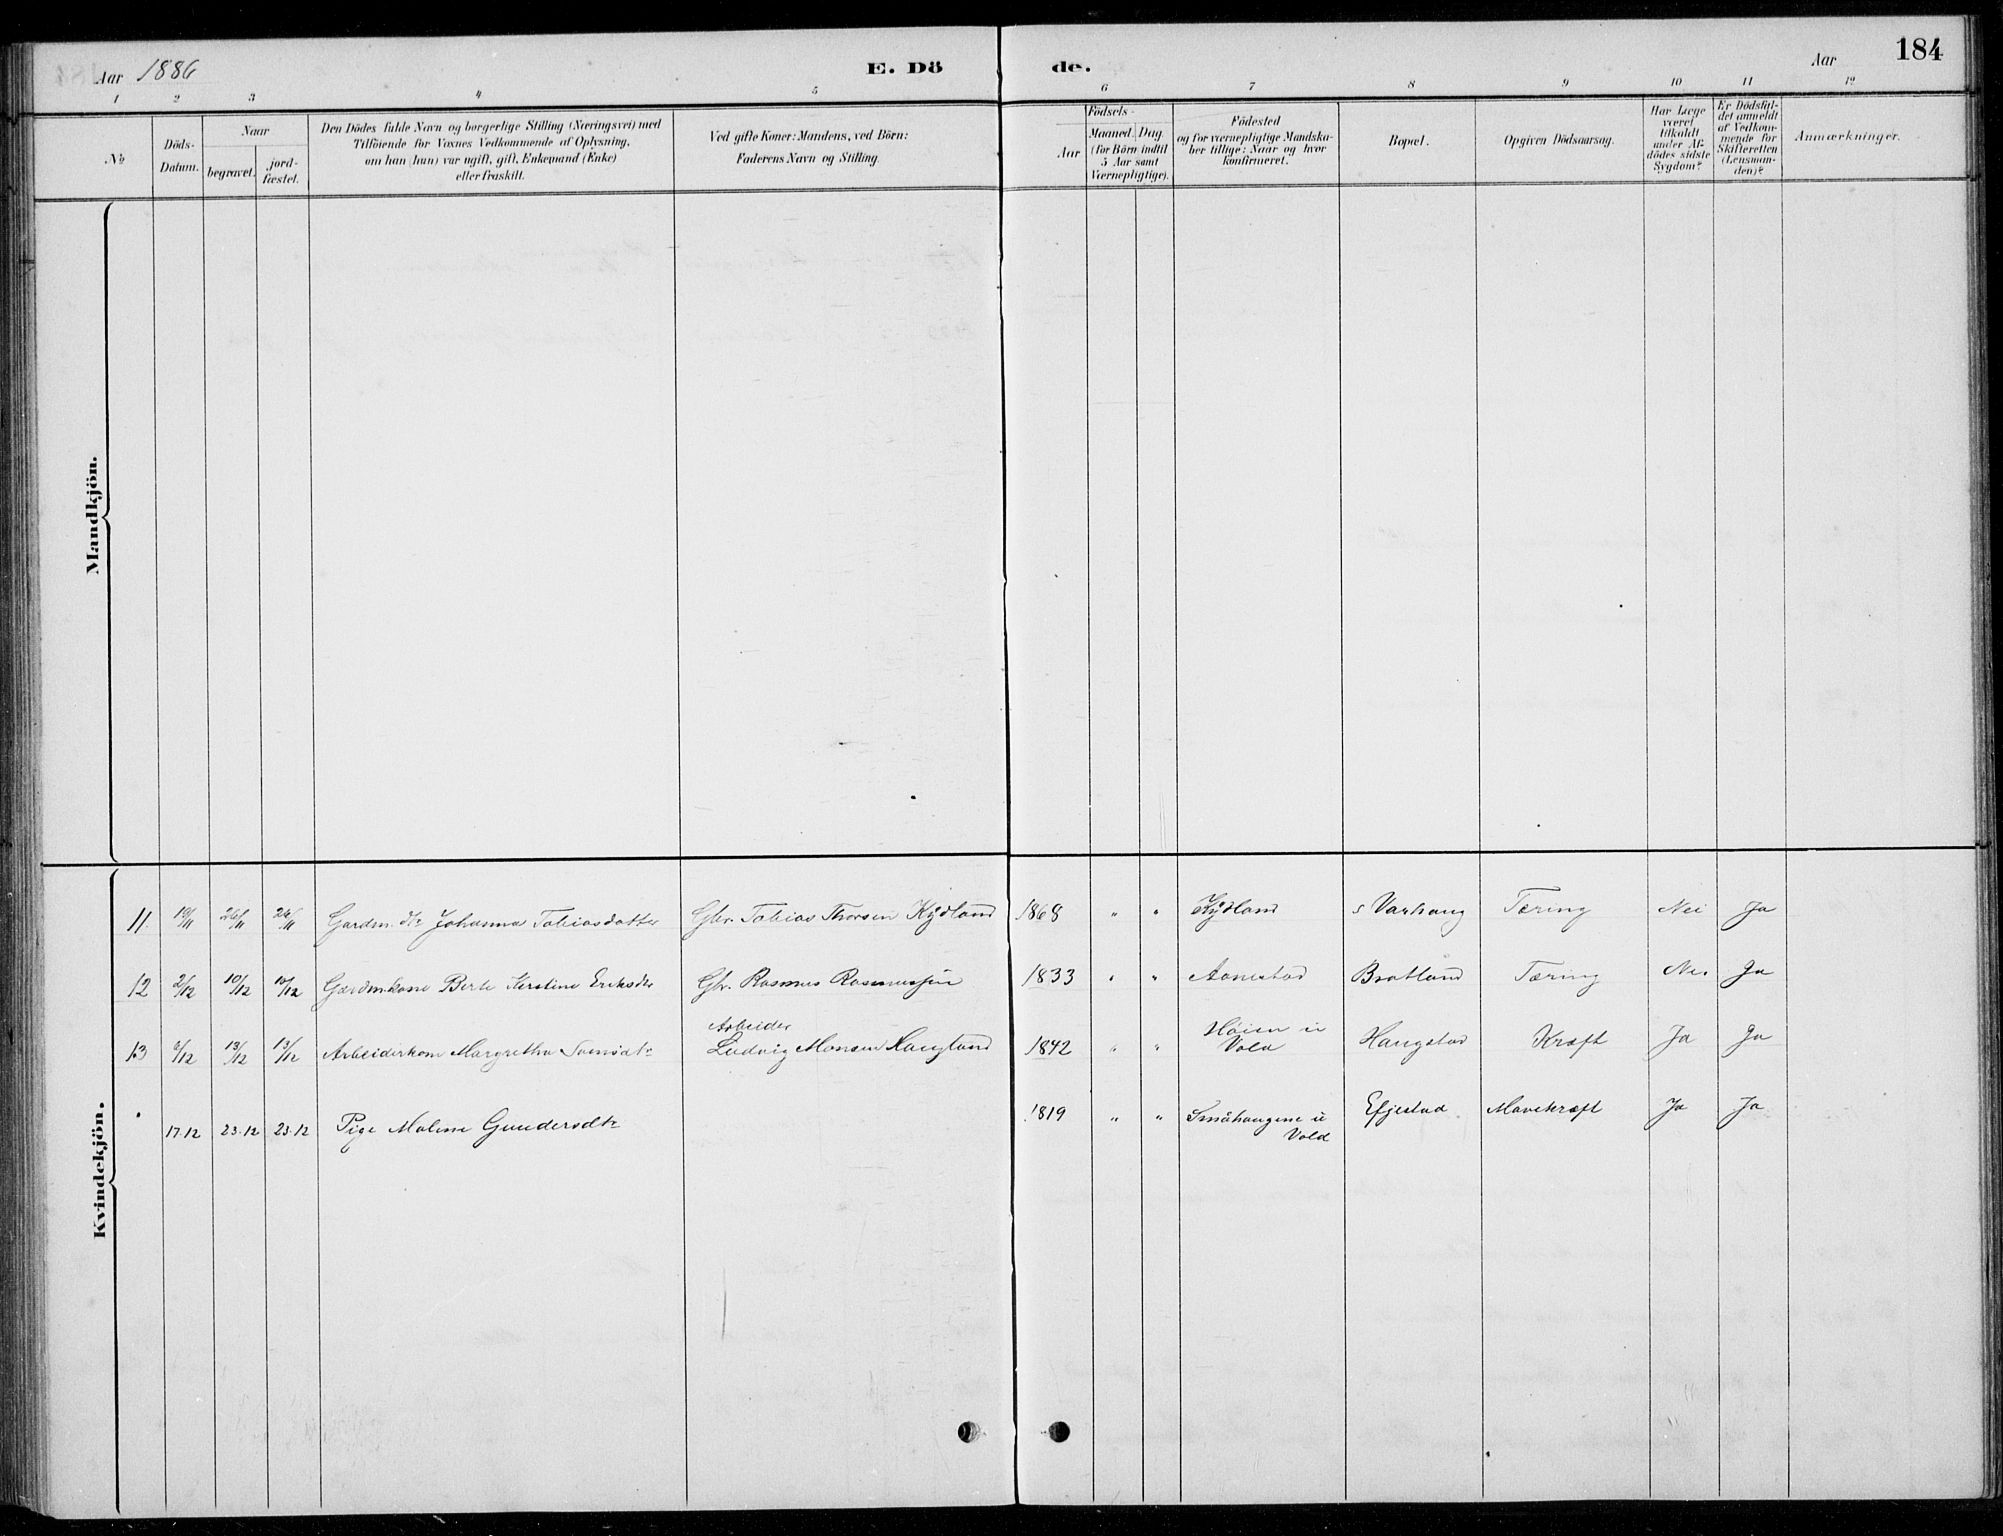 Aar 1886
E. Dö
de.
Aar
184
1 2 3 4 5 6 7 8 9 10 11 12
No
Döds-
Datum.
Naar
begravet.
jord-
fæstet.
Den Dödes fulde Navn og borgerlige Stilling (Næringsvei) med
Tilföiende for Voxnes Vedkommende af Oplysning,
om han (hun) var ugift, gift, Enkemand (Enke)
eller fraskilt.
Ved gifte Koner: Mandens, ved Börn:
Faderens Navn og Stilling.
Födsels-
Aar
Maaned. Dag.
(for Börn indtil
5 Aar samt
Værnepligtige).
Födested
og for værnepligtige Mandska-
ber tillige: Naar og hvor
konfirmeret.
Bopæl.
Opgiven Dödsaarsag.
Har Læge
været
tilkaldt
under Af-
dödes sidste
Sygdom?
Er Dödsfal-
det anmeldt
af Vedkom-
mende for
Skifteretten
(Lensman-
den)?
Anmærkninger.
Mandkjön.
Kvindekjön.
11. 19/11 26/11 26/11 Gardm. dtr Johanna Tobiasdatter Gbr. Tobias Thorsen Kydland 1868 " " Kydland s Varhaug Tæring Nei Ja
12 2/12 10/12 10/12 Gardmkone Berte Kirstine Eriksdtr Gbr. Rasmus Rasmussen 1833 " " Aanestad Bratland Tæring Nei Ja
Arbeider
13 6/12 13/12 13/12 Arbeiderkone Margretha Svensdtr Ludvig Monsen Haugland 1842 " " Höien i
Vold Haugstad Kræft Ja Ja
17.12 23.12 23.12 Pige Malene Gundersdtr 1819 " " Småhaugene i
Vold Efjestad Mavekræft Ja Ja